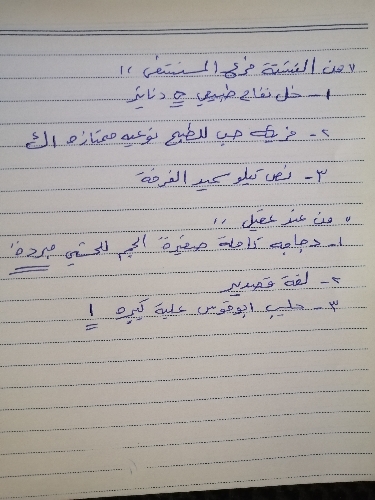 من القشتة فرع المستشفى //
١- خل تفاح طبيعي دنانير
٢- مزيكه حب للطبخ نوعيه ممتازه
٣- نص كيلو سميد القرفة
من عند عقيل //
١- دجاجه كاملة صغيرة الحجم للحشي مبردة
٢- لفة قصدير
٣- حليب ابوقوس علبة كبيره 1